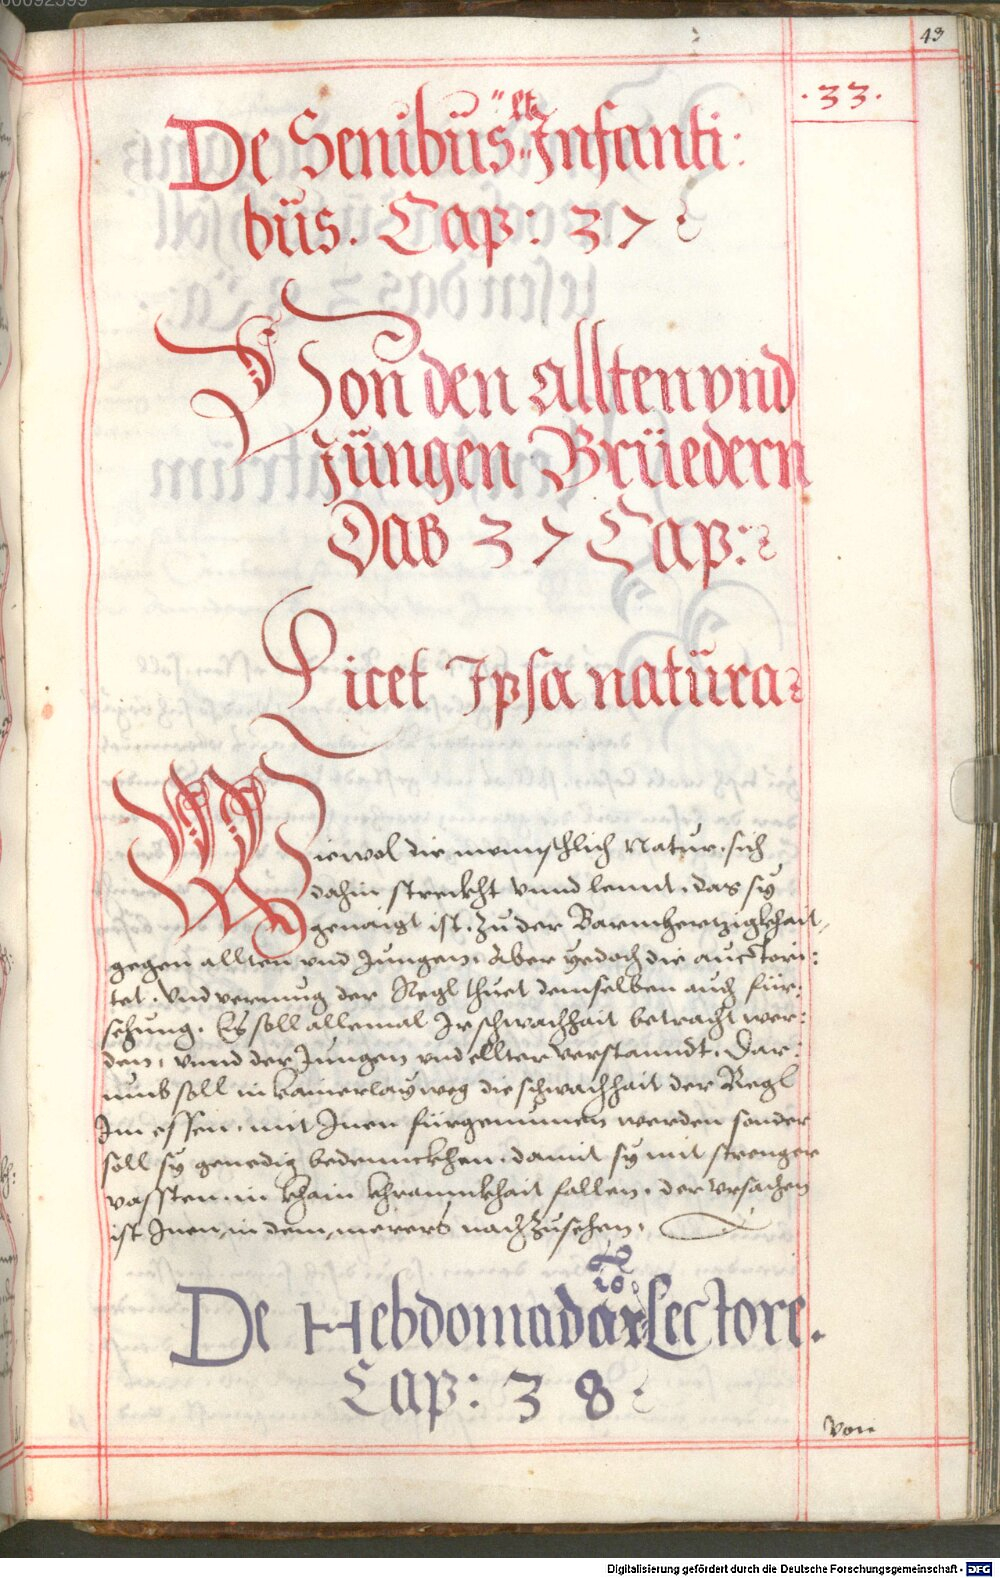 43
.33.
De Senibüs "et" Infanti:
büs. Cap: 37
Von den allten vnd
Jüngen Brüedern
Das 37 Cap:
Licet Ipsa natüra
Wiewol die mennschlich Natur, sich
dahin streckht vnnd lennt, das sy
genaigt ist, Zu der Barmhertzigkhait,
gegen allten vnd Jungen, Aber yedoch die auctori:
tet, Vnd vermug der Regl thuet demselben auch für:
sehung. Es soll allemal Ir schwachhait betracht wer:
den, vnnd der Jungen vnd ellter verstanndt, Dar:
umb soll in kainerlay weg die schwachhait der Regl
Im essen, mit Inen fürgenumen werden sonder
soll sy genedig bedennckhen, damit sy mit strenger
vassten, in khain khrannkhait fallen, der vrsachen
ist Inen, in dem, merers nachZusehen,
De Hebdomadario Lectore.
Cap: 38
Von
Digitalisierung gefördert durch die Deutsche Forschungsgemeinschaft - DFG